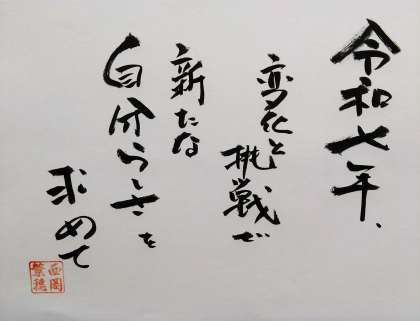 令和七年、
変化と
挑戦で
新たな
自分らしさを
求めて
西岡
繁穂